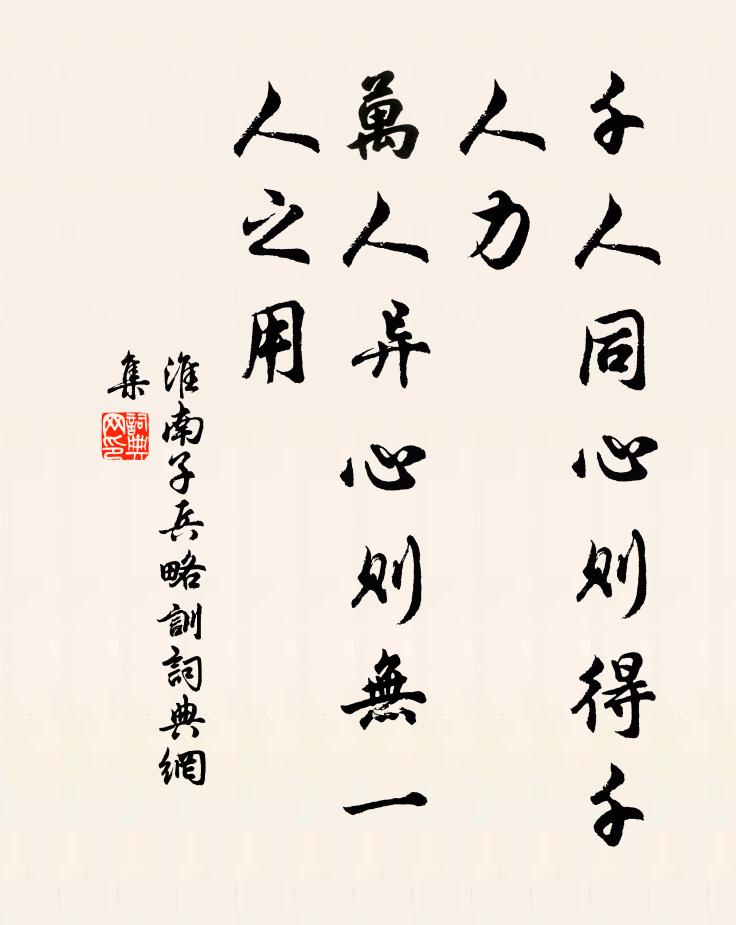 千人同心則得千
人力
萬人异心則無一
人之用
淮南子兵略訓詞典網
集
詞典
网印